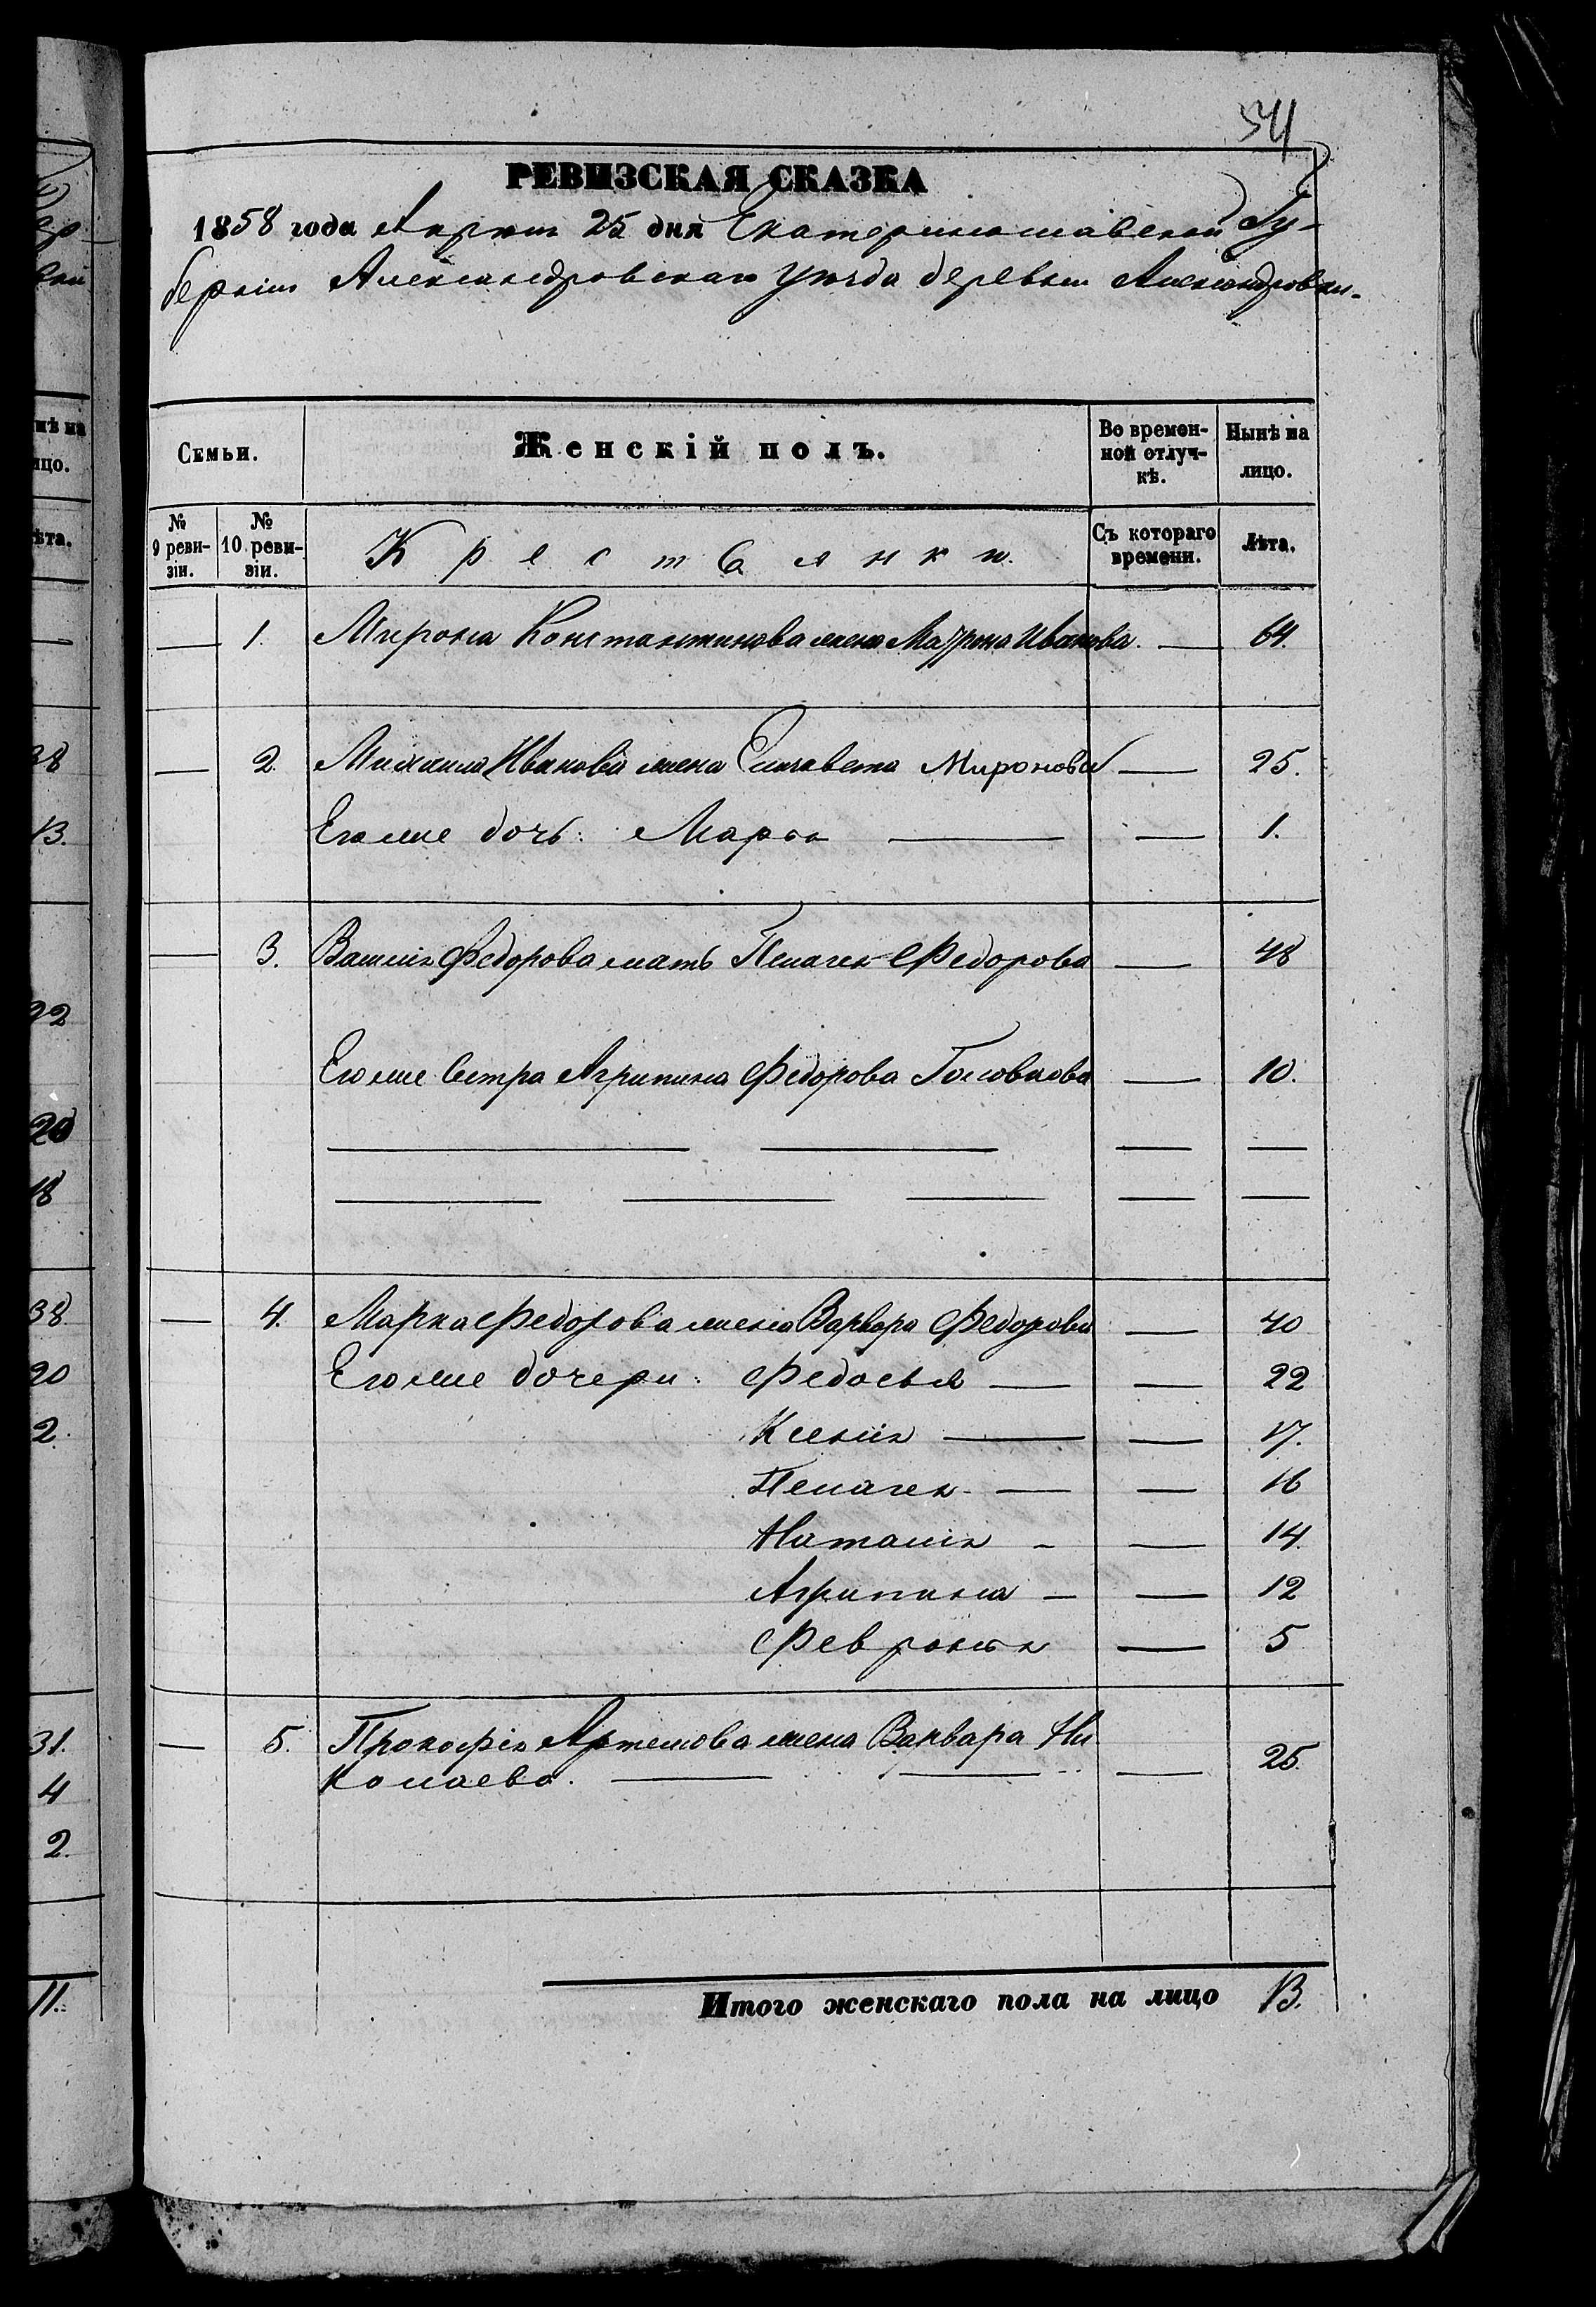 541
РЕВИЗСКАЯ СКАЗКА
1858 года Апреля 25 дня Екатеринославской Гу-
берніи Александровскаго уѣзда деревни Александровки.
Семьи. Женскій полъ. Во времен- Нынѣ на
ной отлуч- лицо.
кѣ.
№ № Крестьянки. Съ котораго Лѣта.
9 реви- 10 реви- времени.
зіи. зіи.
— 1. Мирона Константинова жена Матрона Иванова. — 64.
— 2. Михаила Иванова жена Елизавета Миронова — 25.
Его же дочь: Марѳа — — 1.
— 3. Василія Федорова мать Пелагея Федорова — 48
Его же Сестра Агрипина Федорова Головкова — 10.
— — — —
— — — — —
— 4. Марка Федорова жена Варвара Федорова — 40
Его же дочери: Федосья — — 22
Ксенія — — 17.
Пелагея — — 16
Наталія - — 14.
Агрипина — — 12
Февронія — 5
— 5. Прокофія Артемова жена Варвара Ни
колаева. — — — 25.
Итого женскаго пола на лицо 13.
нѣ на
ицо.
ѣта.
—
38
13.
22
20
18
38
20
2.
31.
4
2.
11.